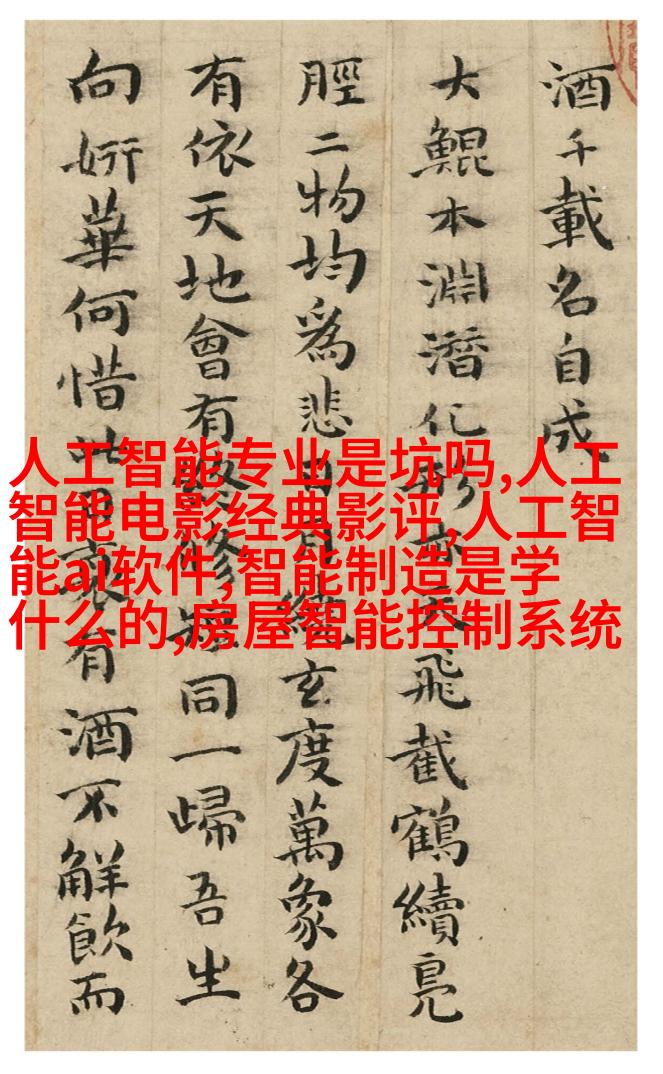 酒千載名自成
大鯤本淵潛化形亦天飛截鶴續鳧
脛二物均爲悲日月繞玄度萬象各
有依天地會有終修短同一歸吾生
向妍華何惜此日衰有酒不觧飲而
人工智能专业是坑吗,人工
智能电影经典影评,人工智
能ai软件,智能制造是学
什么的,房屋智能控制系统